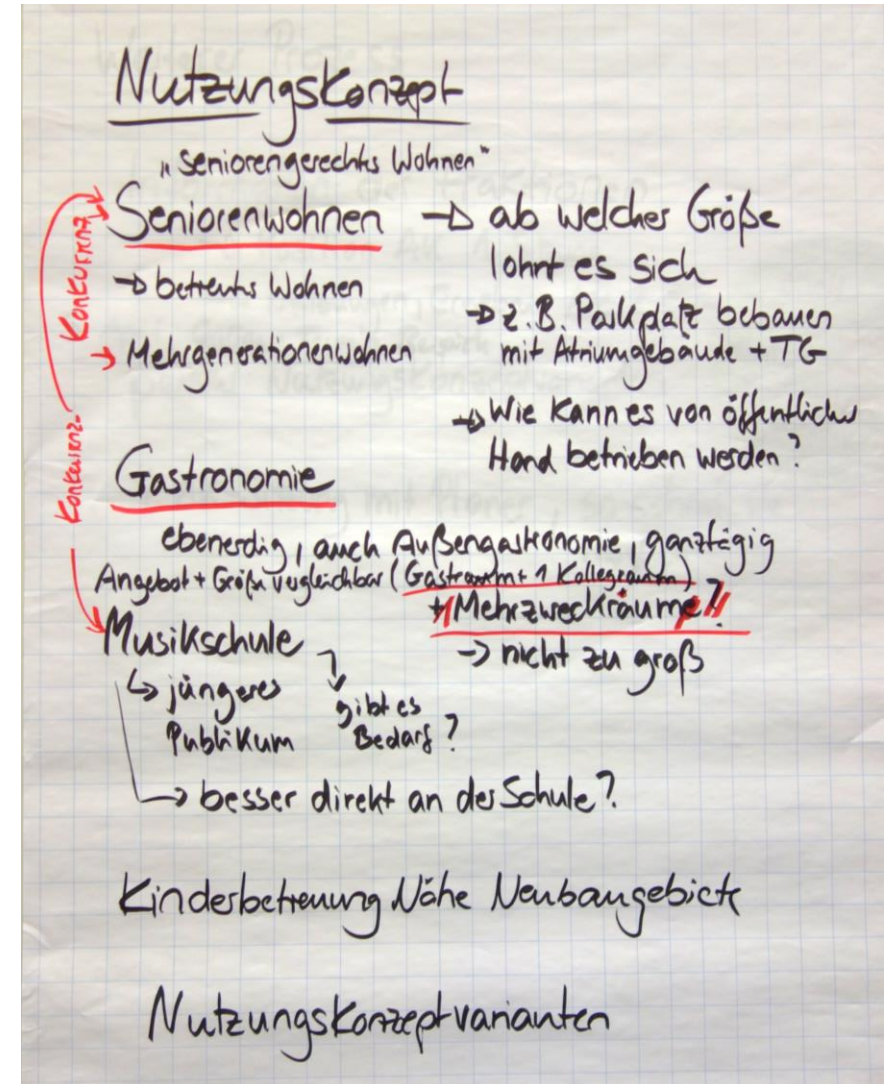 Nutzungskonzept
„seniorengerechtes Wohnen“
Seniorenwohnen → ab welcher Größe
lohnt es sich
→ betreutes Wohnen
→ z.B. Parkplatz bebauen
→ Mehrgenerationenwohnen
mit Atriumgebäude + TG
→ Wie kann es von öffentlicher
Hand betrieben werden?
Konkurrenz
Konkurrenz
Gastronomie
ebenerdig, auch Außengastronomie, ganztägig
Angebot + Größe vergleichbar (Gastraum + 1 Kollegraum)
+ Mehrzweckräume?
→ nicht zu groß
Musikschule
↳ jüngeres
Publikum
gibt es
Bedarf?
→ besser direkt an der Schule?
Kinderbetreuung Nähe Neubaugebiete
Nutzungskonzeptvarianten